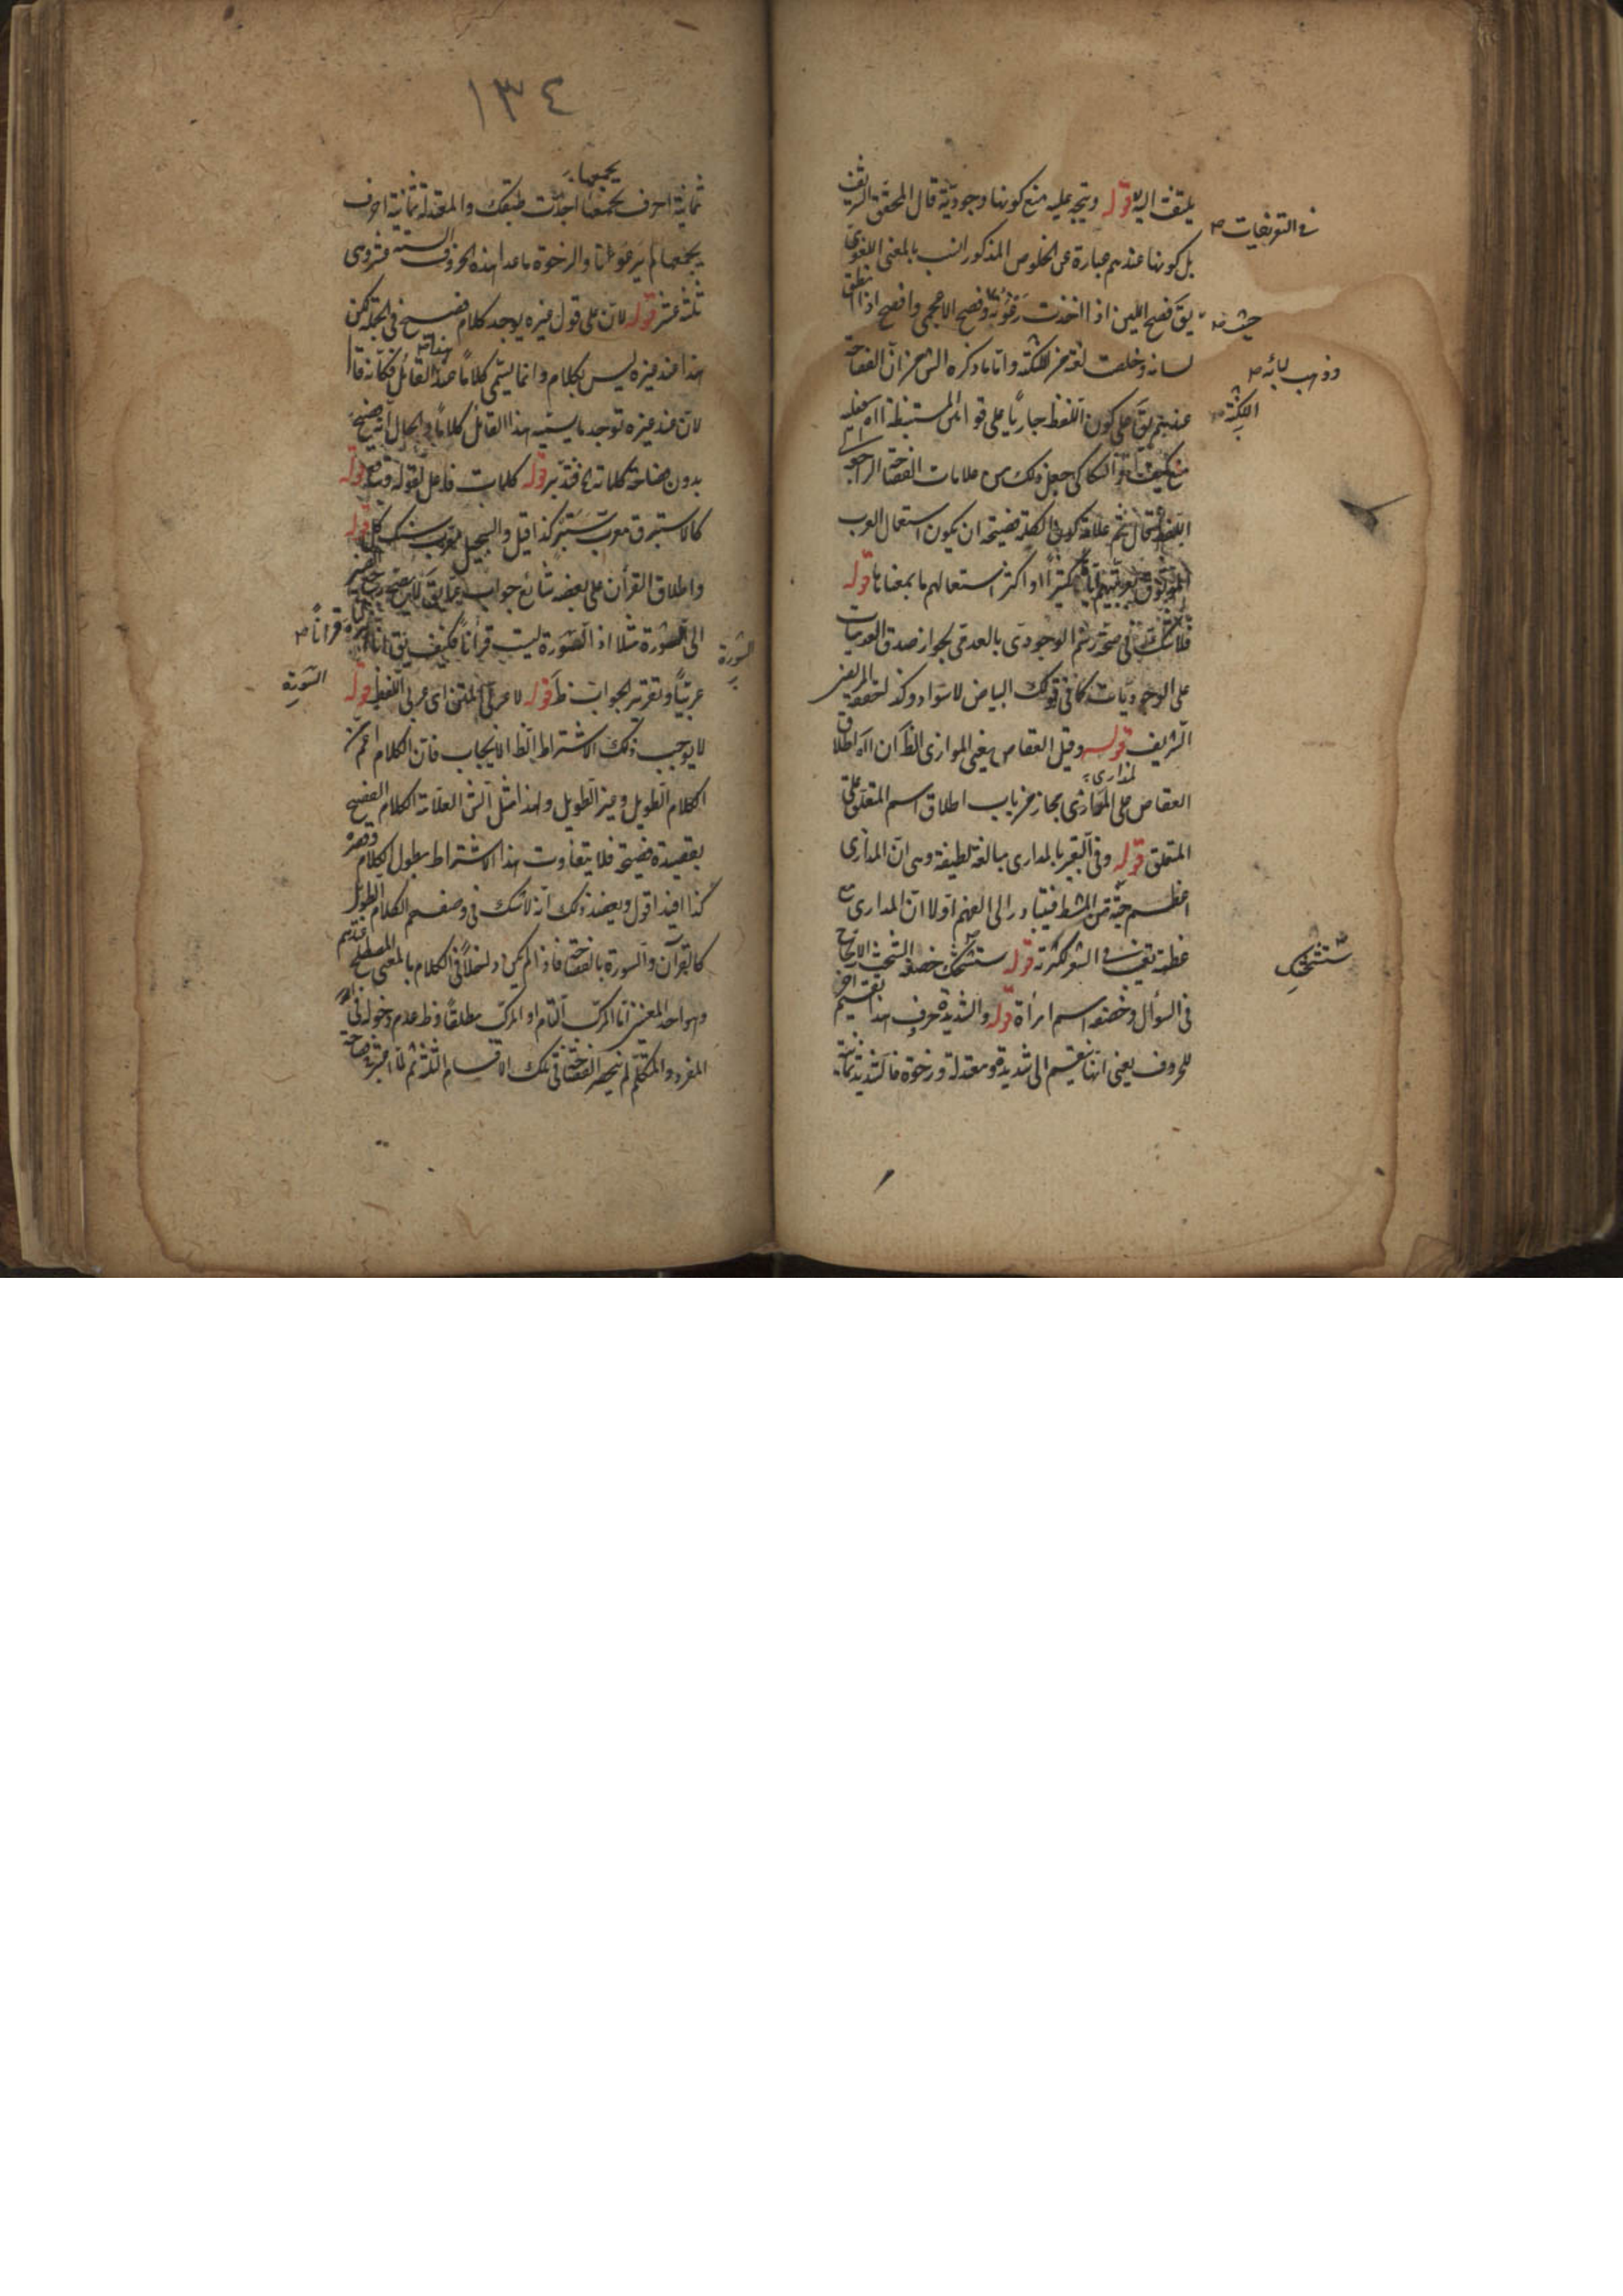 يلتفت اليه قوله ويتجه عليه منع كونها وجودية قال المحقق الشريف
فى التعريفات صح
بل كونها عندهم عبارة عن الخلوص المذكور انسب بالمعنى اللغوى
يق فصح اللبن اذا اخذت رغوته وفصح الاعجمى وافصح اذا انطلق
لسانه وخلصت لغته من اللكنة واما ما ذكره الش من ان الفصاحة
وذهب لبائه صح
اللكنة
عندهم يق على كون اللفظ جاريا على قوا المستنبطة اه ففيه
منع كيف والسكاكى جعل ذلك من علامات الفصاحة الراجعة
اللفظ قال ثم علامة كون الكلمة فصيحة ان يكون استعمال العرب
الموثوق بعربيتهم لها كثيرا او اكثر استعمالهم ما بمعناها قوله
فلا شك فى صحة الوجودى بالعدمى لجواز صدق العدميات
على الوجوديات كما فى قولك البياض لا سواد وكذا حققه
الشريف قوله وقيل العقاص يعنى الموارى الظ ان اه اطلاق
لمدارى
العقاص على المدارى مجاز من باب اطلاق اسم المتعلق على
المتعلق قوله وفى التعبير بالمدارى مبالغة لطيفة وهى ان المدارى
اعظم جثة من المشط فيتبادر الى الفهم اولا ان المدارى مع
عظمه تغيب فى الشعر لكثرته قوله ستشحك خصفه الشحث الالحاح
ستشحك
فى السؤال وخصفه اسم امرأة قوله والشديدة حرف هذا تقسيم اخر
للحروف يعنى انها تنقسم الى شديدة ومعتدلة ورخوة فالشديدة ثمانية
١٣٤
يجمعها
ثمانية احرف يجمعها اجدت طبقك والمعتدلة ثمانية احرف
يجمعها لم يرعونا والرخوة ما عدا هذه الحروف الستة عشر وهى
ثلثة عشر قوله لان على قول غيره يوجد كلام فصيح فى الجملة لكن
هذا عند غيره ليس بكلام وانما يسمى كلاما عند هذا القائل فكانه قال
لان عند غيره توجد ما يسميه هذا القائل كلاما والحال انه فصيح
بدون فصاحة كلماته فتدبر قوله كلمات فاعل لقوله وقعت قوله
كالاستبرق معرب ستبر كذا قيل والسجيل معرب سنك كل قوله
واطلاق القرآن على بعضه شائع جواب عما يق لا يصح رجع الضمير
الى السورة مثلا اذ السورة ليست قرآنا فكيف يق انا انزلناه قرانا صح
السورة
السورة
عربيا وتقرير الجواب ظ قوله لا عربى المتن اى عربى اللفظ قوله
لا يوجب ذلك الاشتراط الظ الايجاب فان الكلام اعم من
الكلام الطويل وغير الطويل ولهذا مثل الش العلامة الكلام الفصيح
بقصيدة فصيحة فلا يتفاوت هذا الاشتراط بطول الكلام وقصره
كذا افيد اقول ويعضد ذلك انه لا شك فى وصفهم الكلام الطويل
كالقرآن والسورة بالفصاحة فاذا لم يكن داخلا فى الكلام بالمعنى المصطلح عندهم
وهو احد المعنيين اما المركب التام او المركب مطلقا وظ عدم دخوله فى
المفرد والمتكلم لم ينحصر الفصاحة فى تلك الاقسام الثلثة ثم لما اعتبر فصاحة